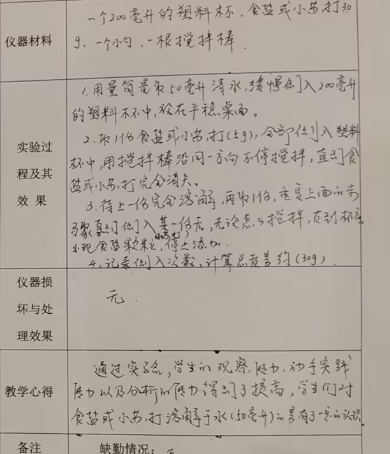 一个200毫升的塑料杯、食盐或小苏打30
仪器材料
g、一个小勺、一根搅拌棒
1.用量筒量取50毫升清水,缓慢倒入200毫升
的塑料杯中,放在平稳桌面。
2.取1份食盐或小苏打(5g),全部倒入塑料
实验过
杯中,用搅拌棒沿同一方向不停搅拌,直到食
程及其
盐或小苏打完全消失。
效 果
3.待上一份完全溶解,再取1份,重复上面的步
骤直到倒入某一份后,无论怎么搅拌,直到杯底
出现食盐颗粒,停止添加。
4.记录倒入次数,计算总质量约(30g)
仪器损
坏与处
无
理效果
通过实验,学生的观察能力,动手实践
能力以及分析的能力得到了提高,学生们对
教学心得
食盐或小苏打溶解于水(50毫升)的量有了一定的认识
备注
缺勤情况:无